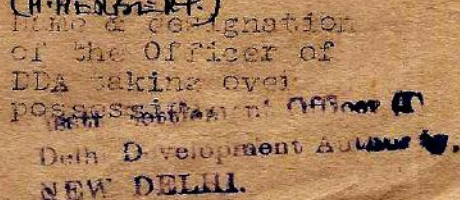 (A. HERBERT.)
Name & designation
of the Officer of
DDA taking over
possession
Officer (I)
Delhi Development Authority,
NEW DELHI.